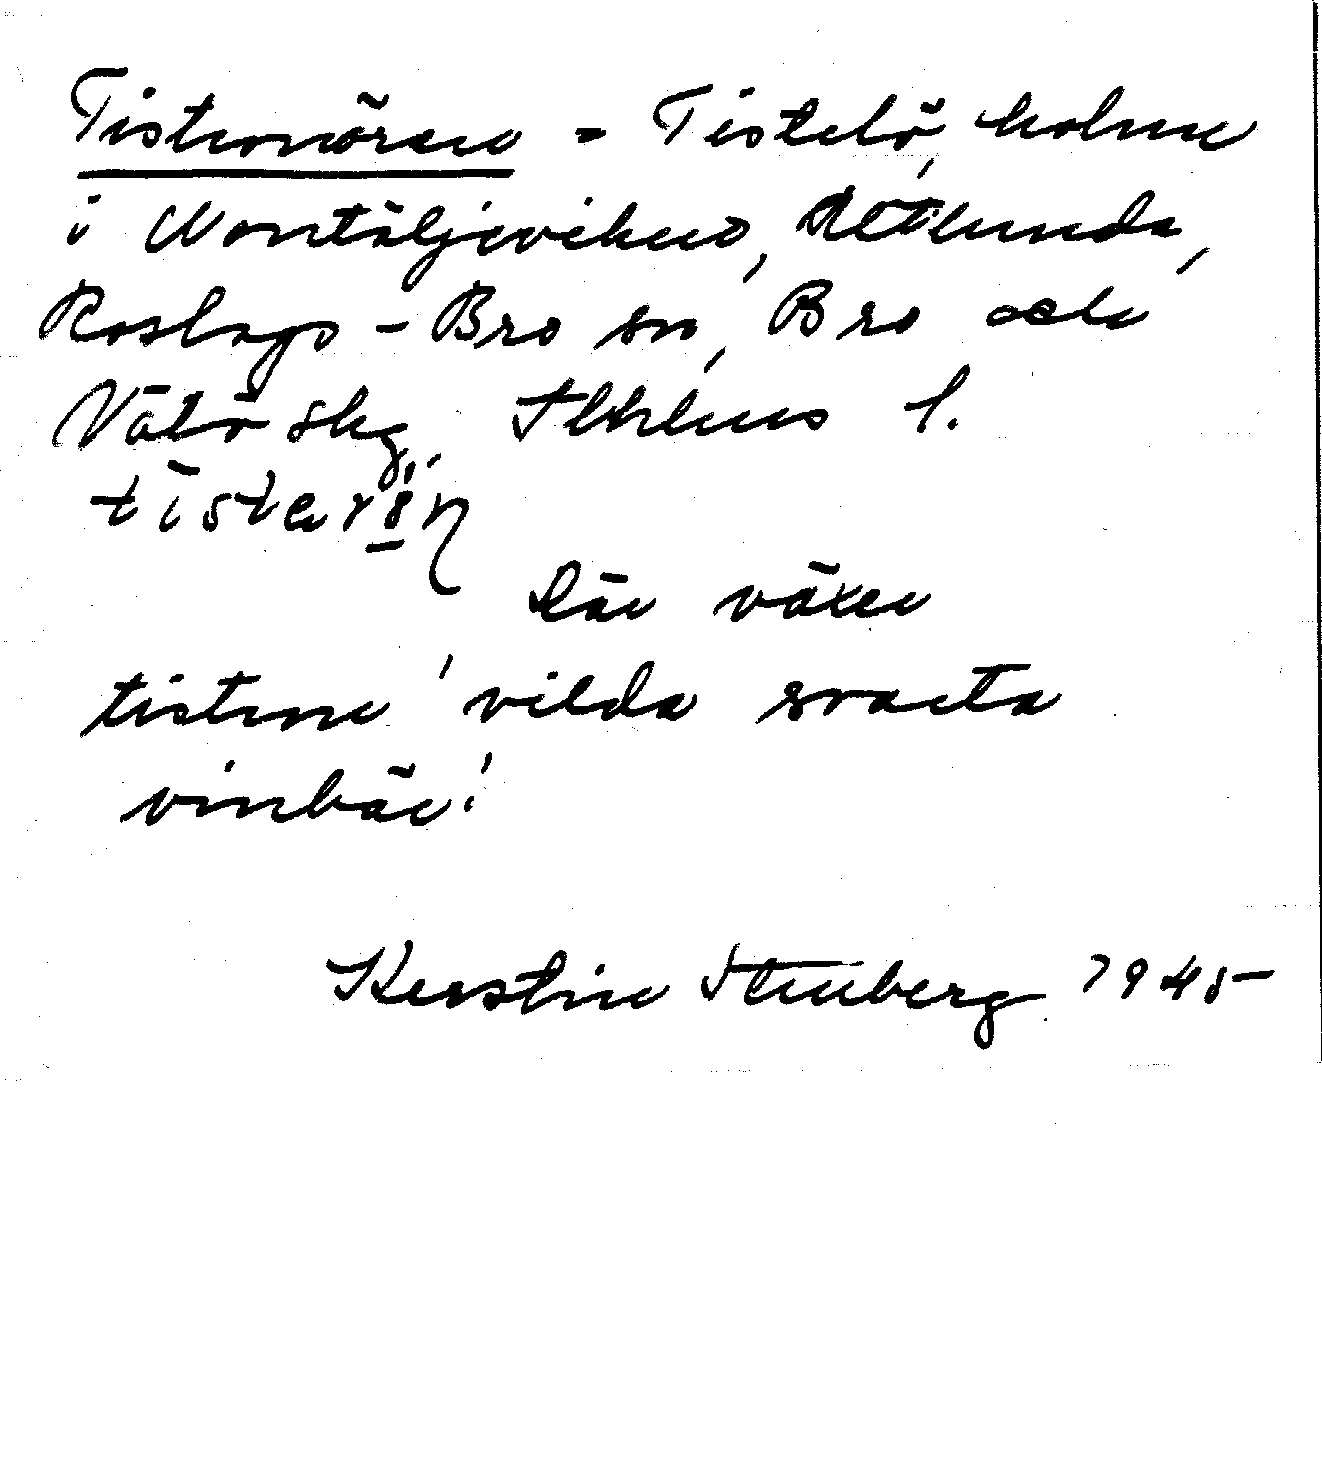 Tistronören = Tistelö, holme
i Norrtäljeviken,
Roslags-Bro sn, Bro och
Vätö skg, Sthlms l.
Där växer
tistron 'vilda svarta
vinbär'.
Kerstin Stenberg 1945